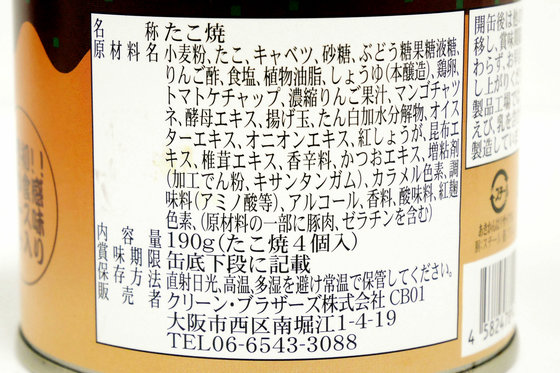 名 称 たこ焼
原材料名 小麦粉、たこ、キャベツ、砂糖、ぶどう糖果糖液糖、
りんご酢、食塩、植物油脂、しょうゆ(本醸造)、鶏卵、
トマトケチャップ、濃縮りんご果汁、マンゴチャツ
ネ、酵母エキス、揚げ玉、たん白加水分解物、オイス
ターエキス、オニオンエキス、紅しょうが、昆布エ
キス、椎茸エキス、香辛料、かつおエキス、増粘剤
(加工でん粉、キサンタンガム)、カラメル色素、調
味料(アミノ酸等)、アルコール、香料、酸味料、紅麹
色素、(原材料の一部に豚肉、ゼラチンを含む)
内 容 量 190g(たこ焼4個入)
賞味期限 缶底下段に記載
保存方法 直射日光、高温、多湿を避け常温で保管してください。
販 売 者 クリーン・ブラザーズ株式会社 CB01
大阪市西区南堀江1-4-19
TEL06-6543-3088
開缶後は
移し、賞味
わらず、お
し上がりく
製品工場
えび、乳を
製造して
スチール
4 5824